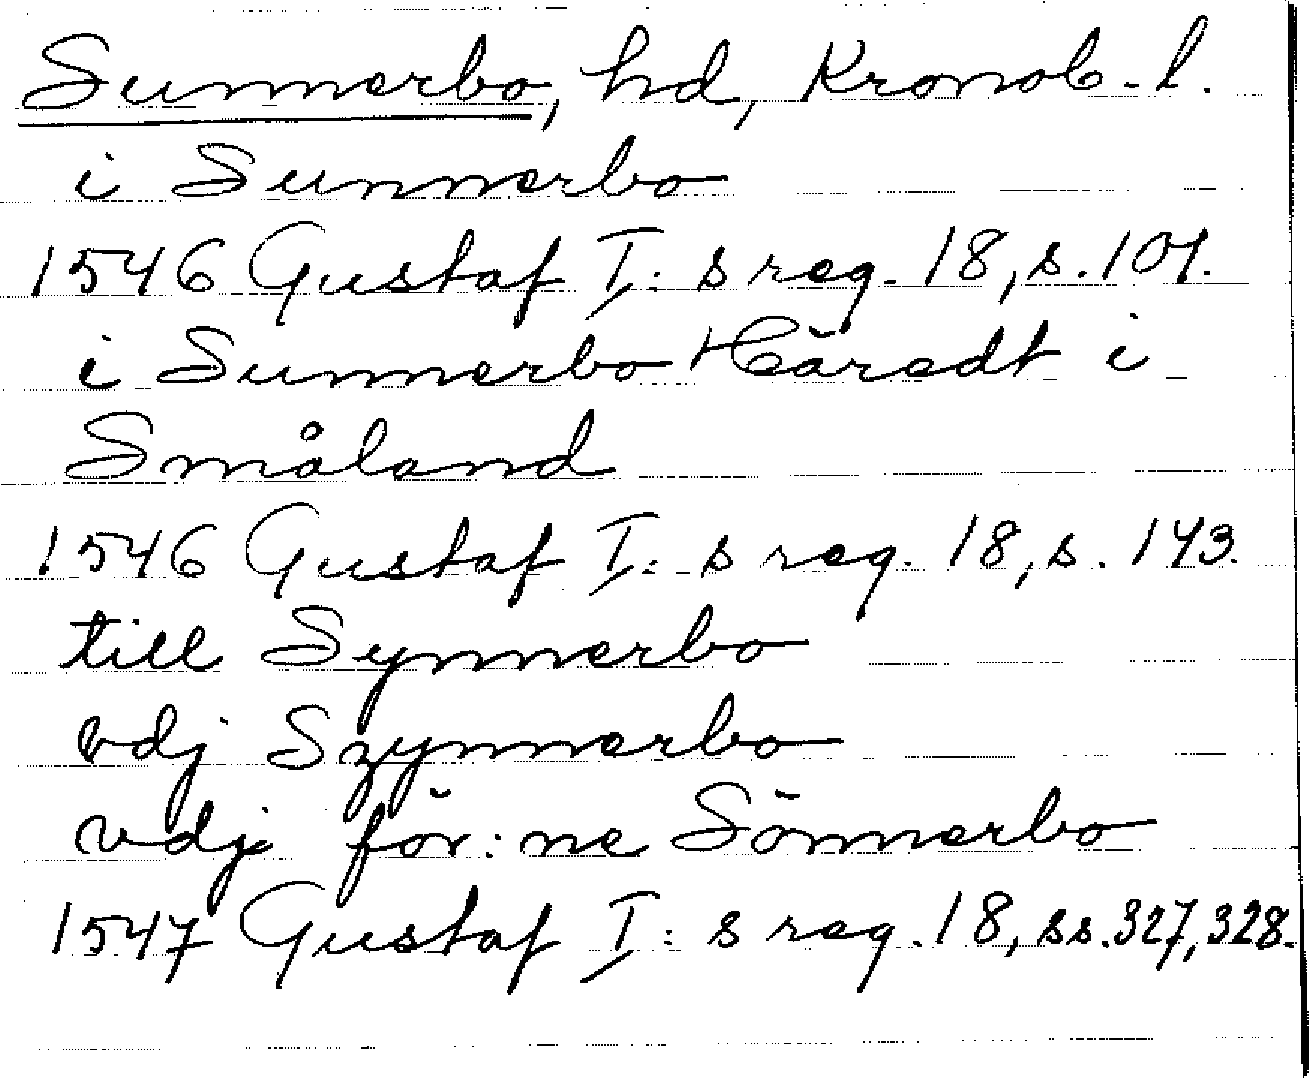 Sunnerbo, hd, Kronob. l.
i Sunnerbo
1546 Gustaf I: s reg. 18, s. 107.
i Sunnerbo Häredt i
Småland
1546 Gustaf I: s reg. 18, s. 143.
till Synnerbo
vdj Szynnerbo
vdj för:ne Sönnerbo
1547 Gustaf I: s reg. 18, ss. 327, 328.